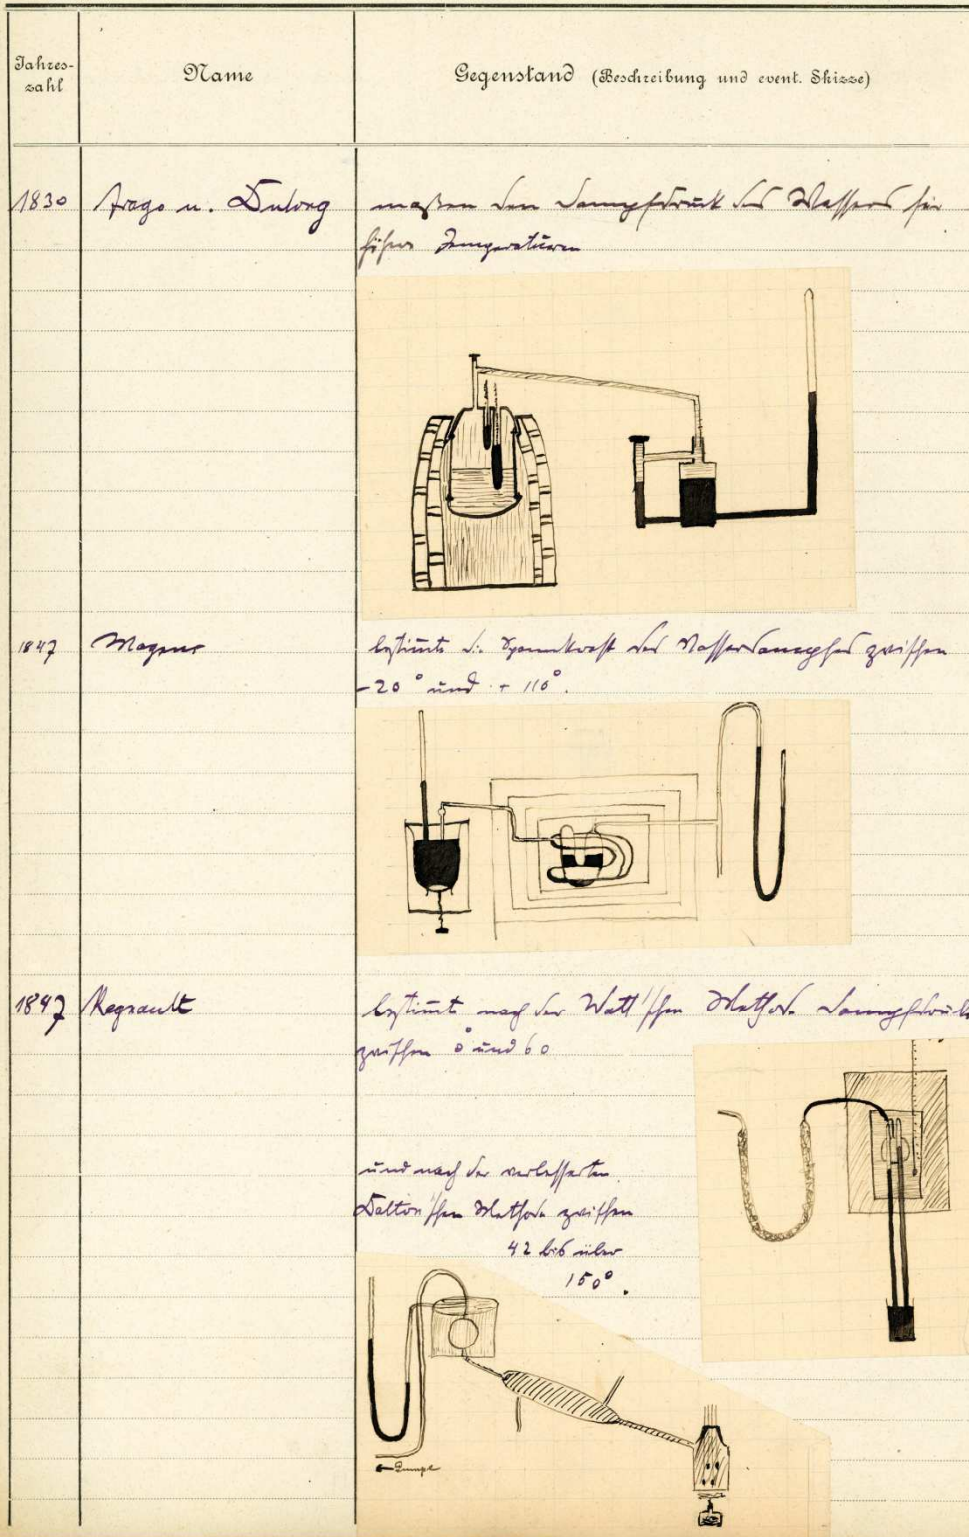 Jahres-
zahl
Name
Gegenstand (Beschreibung und event. Skizze)
1830 Arago u. Dulong maßen den Dampfdruck des Wassers für
höhere Temperaturen
1847 Magnus bestimmte die Spannkraft des Wasserdampfes zwischen
-20° und + 110°.
1847 Regnault bestimmt nach der Watt'schen Methode Dampfdruck
zwischen 0° und 60
und nach der verbesserten
Dalton'schen Methode zwischen
42 bis über
150°.
Pumpe